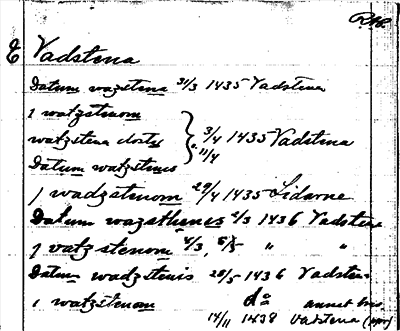 Vadstena
Datum wazstena 31/3 1435 Vadstena
j watzstenom
watzstena closter } 3/4 1435 Vadstena
Datum watzstenes 11/4
j wadzstenom 29/4 1435 Lidarne
Datum wazsthenes 2/3 1436 Vadstena
j vatzstenom 4/3, 5/5 " "
Datum wadzstenis 28/5 1436 Vadstena
i watzstenom do annat brev
14/11 1438 Vadstena